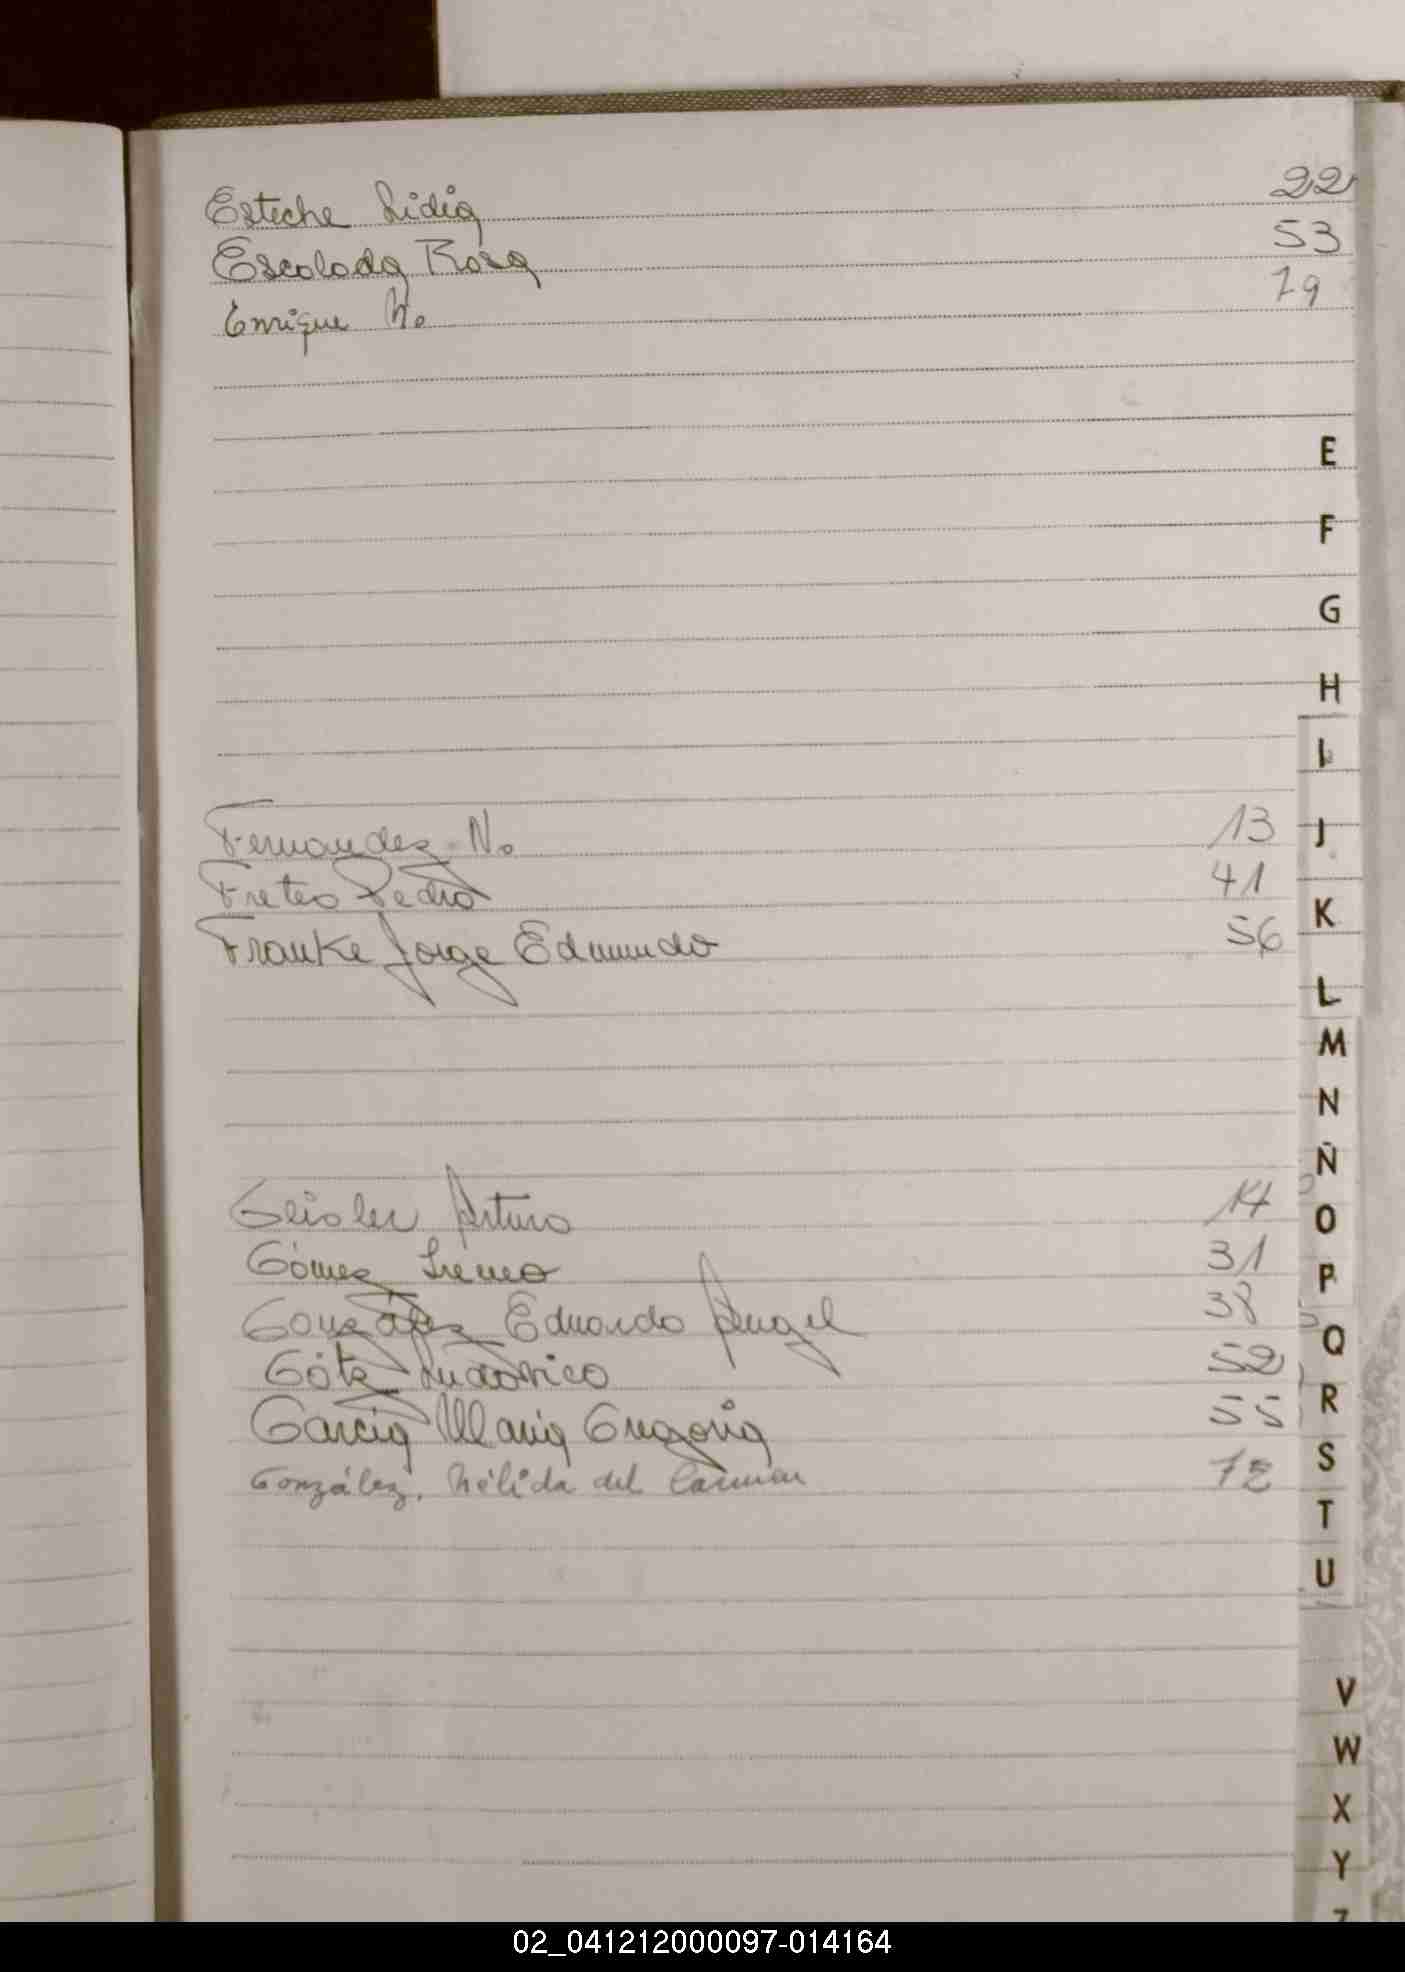 Esteche Lidia 22
Escolada Rosa 53
Enrique N. 79
E
F
G
H
I
Fernandez N. 13
J
Fretes Pedro 41
K
Franke Jorge Edmundo 56
L
M
N
Ñ
Geisler Arturo 14
O
Gómez Ireneo 31
P
González Eduardo Angel 38
Q
Götz Ludovico 52
R
Garcia Maria Gregoria 55
S
González, Nélida del Carmen 72
T
U
V
W
X
Y
02_041212000097-014164